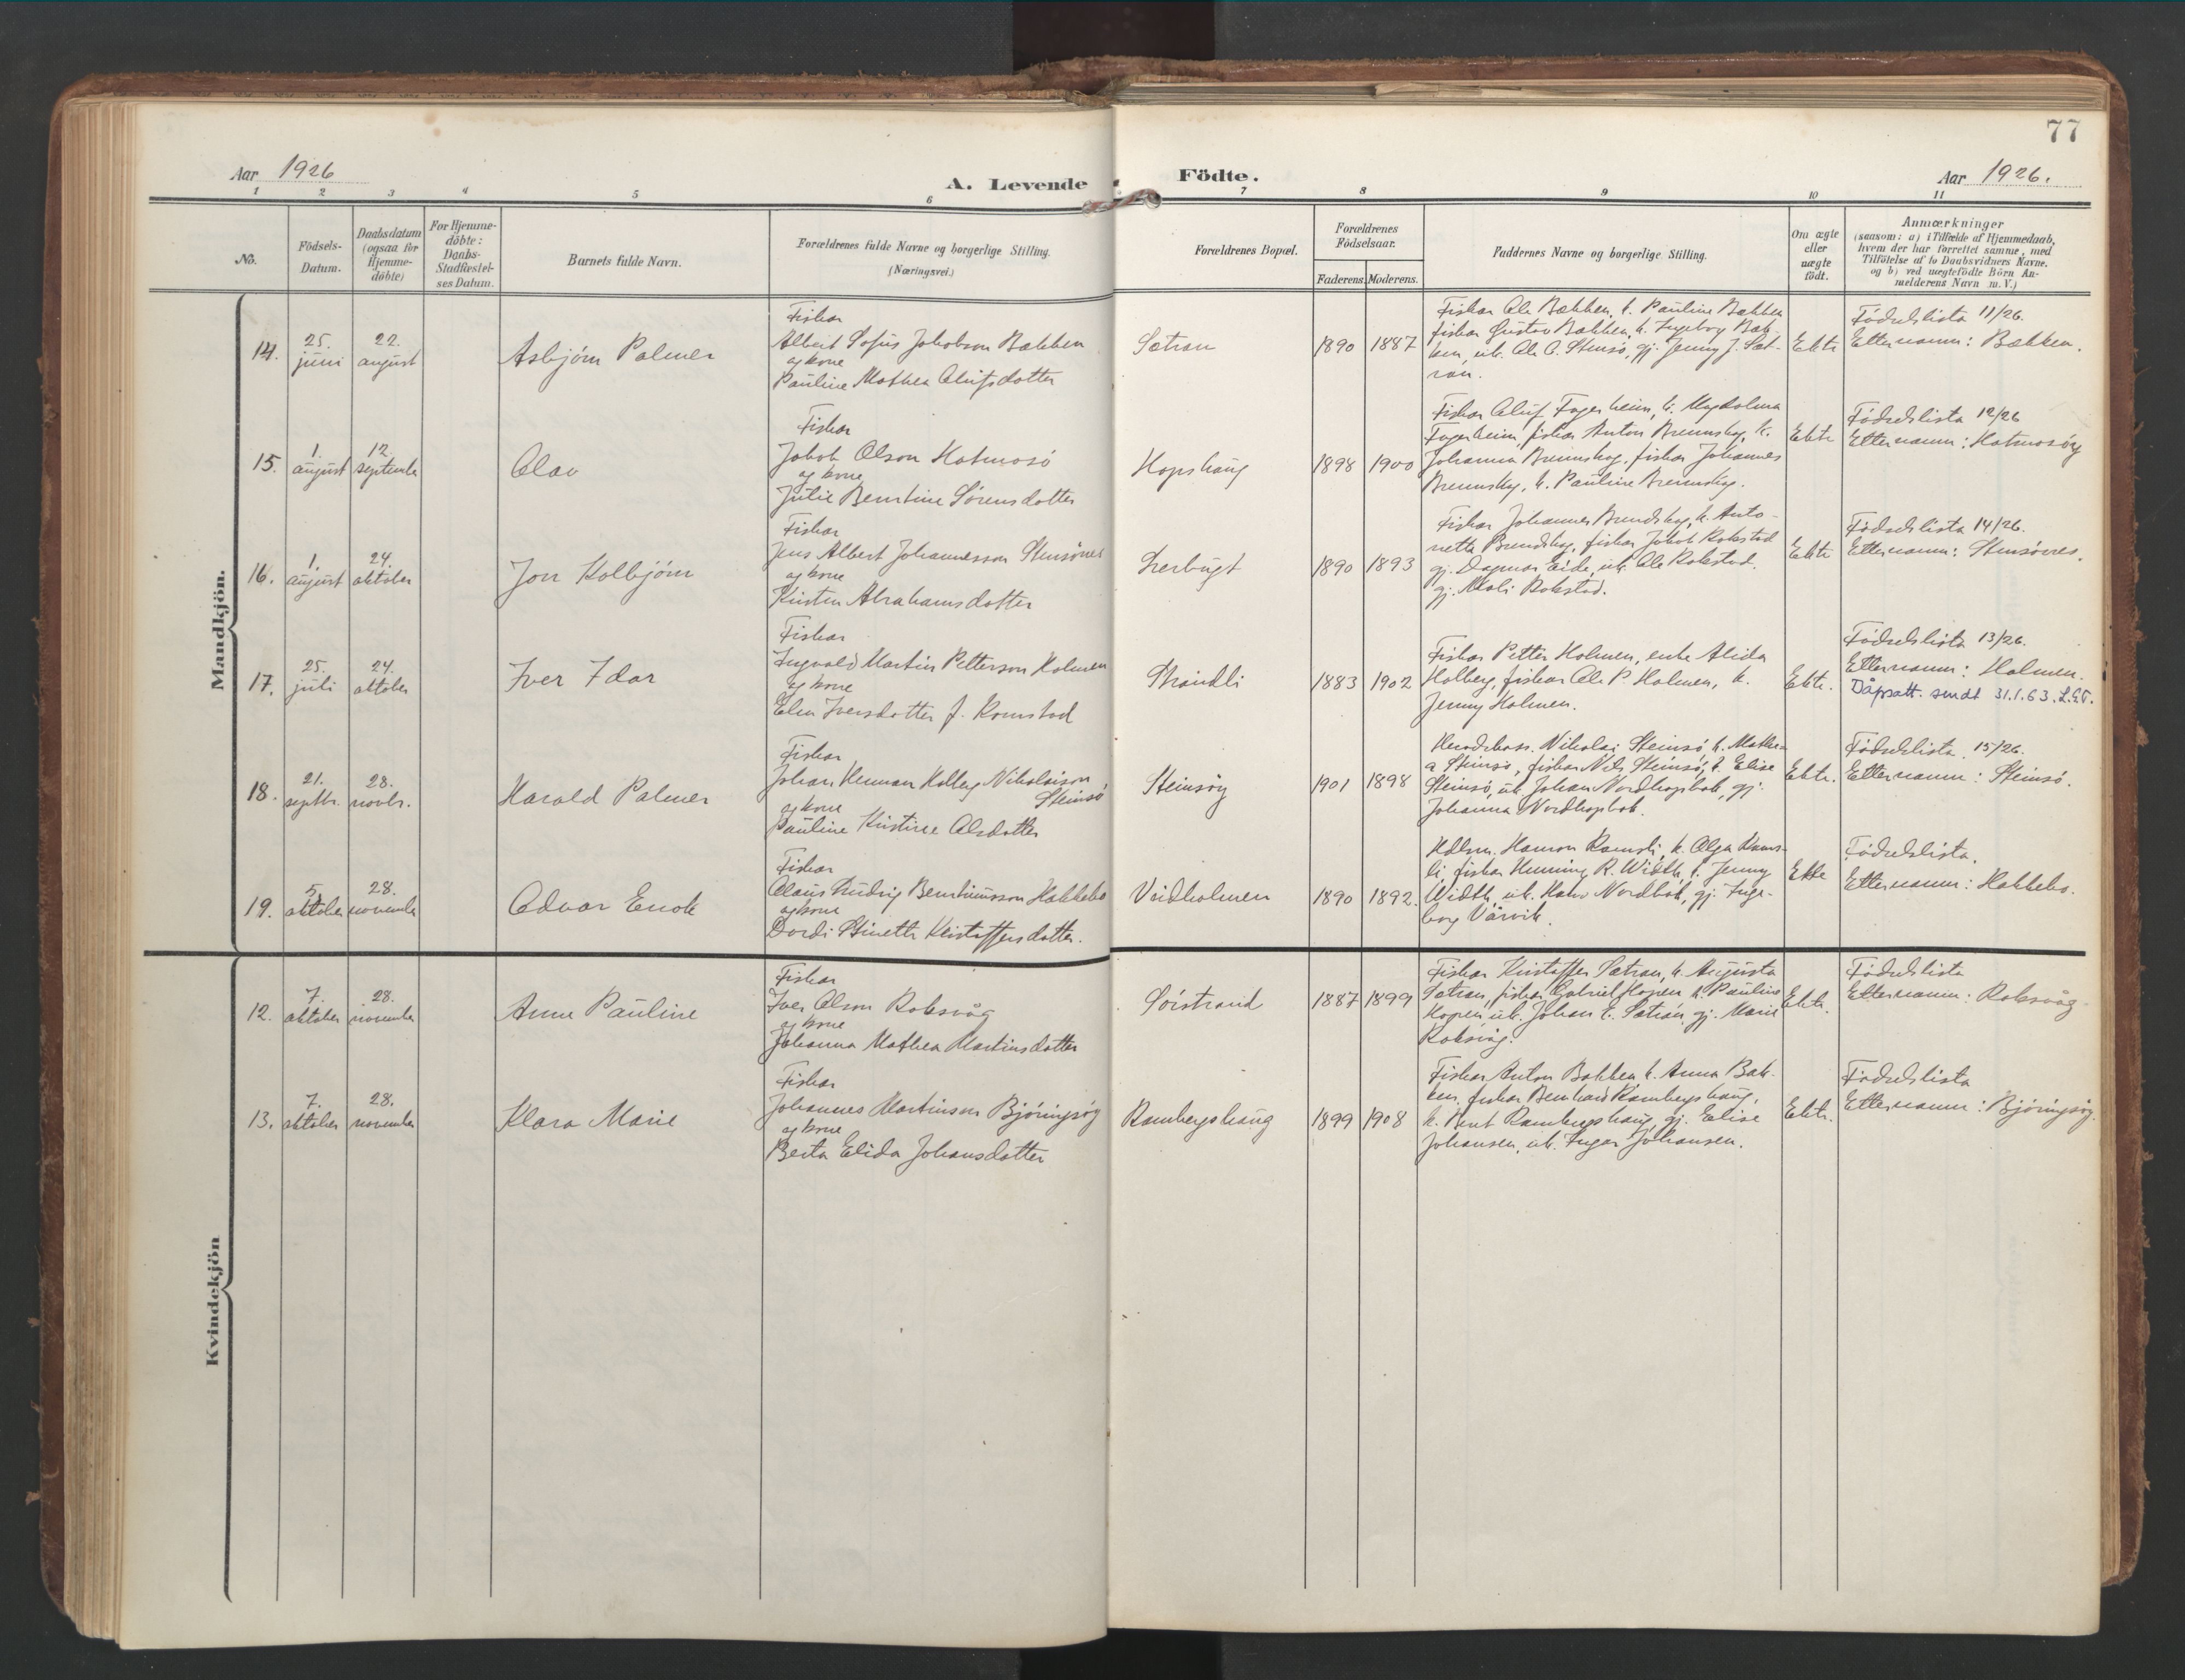 77
Aar 1926
A. Levende Födte.
Aar 1926.
1 2 3 4 5 6 7 8 9 10 11
No.
Födsels-
Datum.
Daabsdatum
(ogsaa for
Hjemme-
döbte)
For Hjemme-
döbte:
Daabs-
Stadfæstel-
ses Datum.
Barnets fulde Navn.
Forældrenes fulde Navne og borgerlige Stilling.
(Næringsvei.)
Forældrenes Bopæl.
Forældrenes
Födselsaar.
Faderens. Moderens.
Faddernes Navne og borgerlige Stilling.
Om ægte
eller
uægte
födt.
Anmærkninger
(saasom: a) i Tilfælde af Hjemmedaab,
hvem der har forrettet samme, med
Tilföielse af to Daabsvidners Navne.
og b) ved uægtefödte Börn An-
melderens Navn m. V.)
Mandkjön.
14.
25.
juni
22.
august
Asbjórn Palmer
Fiskar
Albert Sofus Jakobson Bakken
og kone
Pauline Mathea Olufsdotter
Sætran
1890 1887
Fiskar Ole Bakken, k. Pauline Bakken
fiskar Gustav Bakken, k. Ingeborg Bak-
ken, uk. Ole O. Stensó, gj. Jenny J. Sæt-
ran.
Ekte
Fódselslista 11/26.
Etternamn: Bakken.
15.
1.
august
12.
september
Olav
Fiskar
Jakob Olson Hatmosó
og kone
Julie Berntine Sórensdotter
Hopshaug
1898 1900
Fiskar Oluf Fagerheim, k. Magdalena
Fagerheim, fiskar Anton Brennskag, k.
Johanna Brennskag, fiskar Johannes
Brennskag, k. Pauline Brennskag.
Ekte
Fódselslista 12/26
Etternamn: Hatmosóy
16.
1.
august
24.
oktober
Jon Kolbjórn
Fiskar
Jens Albert Johannesson Stensónes
og kone
Kirsten Abrahamsdotter
Lerbugt
1890 1893
Fiskar Johannes Brendskag, k. Anto-
nette Brendskag, fiskar Jakob Rokstad
gj. Dagmar Eide, uk. Ole Rokstad.
gj. Mali Rokstad.
Ekte
Fódselslista 14/26.
Etternamn: Stensónes.
17.
25.
juli
24.
oktober
Iver Idar
Fiskar
Ingvald Martin Petterson Holmen
og kone
Elen Iversdotter f. Romstad
Strandli
1883 1902
Fiskar Petter Holmen, enke Alida
Holberg, fiskar Ole P. Holmen, k.
Jenny Holmen.
Ekte.
Fódselslista 13/26.
Etternamn: Holmen.
Dåpsatt. sendt 31.1.63.
18.
21.
septbr.
28.
novbr.
Harald Palmer
Fiskar
Johan Herman Kolberg Nikolaison
Steinsó
og kone
Pauline Kristine Olsdotter
Steinsóy
1901 1898
Nikolai Steinsó k. Mathe-
a Steinsó, fiskar Nils Steinsó, k. Elise
Steinsó, uk. Johan Nordhopbok, gj.
Johanna Nordhopbok.
Ekte.
Fódselslista 15/26.
Etternamn: Steinsó.
19.
5.
oktober
28.
november
Odvar Enok
Fiskar
Olaus Ludvig Berntinusson Hakkebo
og kone
Dordi Stinette Kristoffersdotter.
Veidholmen
1890 1892.
Ramsli, k. Olga Rams-
li, fiskar Henning R. Width, k. Jenny
Width, uk. Nordbok, gj. Inge-
borg Vårvik.
Ekte
Fódselslista.
Etternamn: Hakkebo.
Kvindekjön
12.
7.
oktober
28.
november
Anne Pauline
Fiskar
Iver Olson Roksvåg
og kone
Johanna Mathea Martinsdotter
Sórstrand
1887 1899
Fiskar Kristoffer Sætran, k. Augusta
Sætran, fiskar Gabriel Hopen k. Pauline
Hopen uk. Johan E. Sætran gj. Marie
Roksvåg.
Ekte.
Fódselslista
Etternamn: Roksvåg.
13.
7.
oktober
28.
november
Klara Marie
Fiskar
Johannes Martinsen Bjóringsóy
og kone
Berta Elida Johansdotter
Rambergshaug
1899 1908
Fiskar Anton Bakken k. Anna Bak-
ken, fiskar Bernhard Rambergshaug,
k. Rambergshaug gj. Elise
Johansen, uk. Inger Johansen.
Ekte.
Fódselslista
Etternamn: Bjóringsóy.